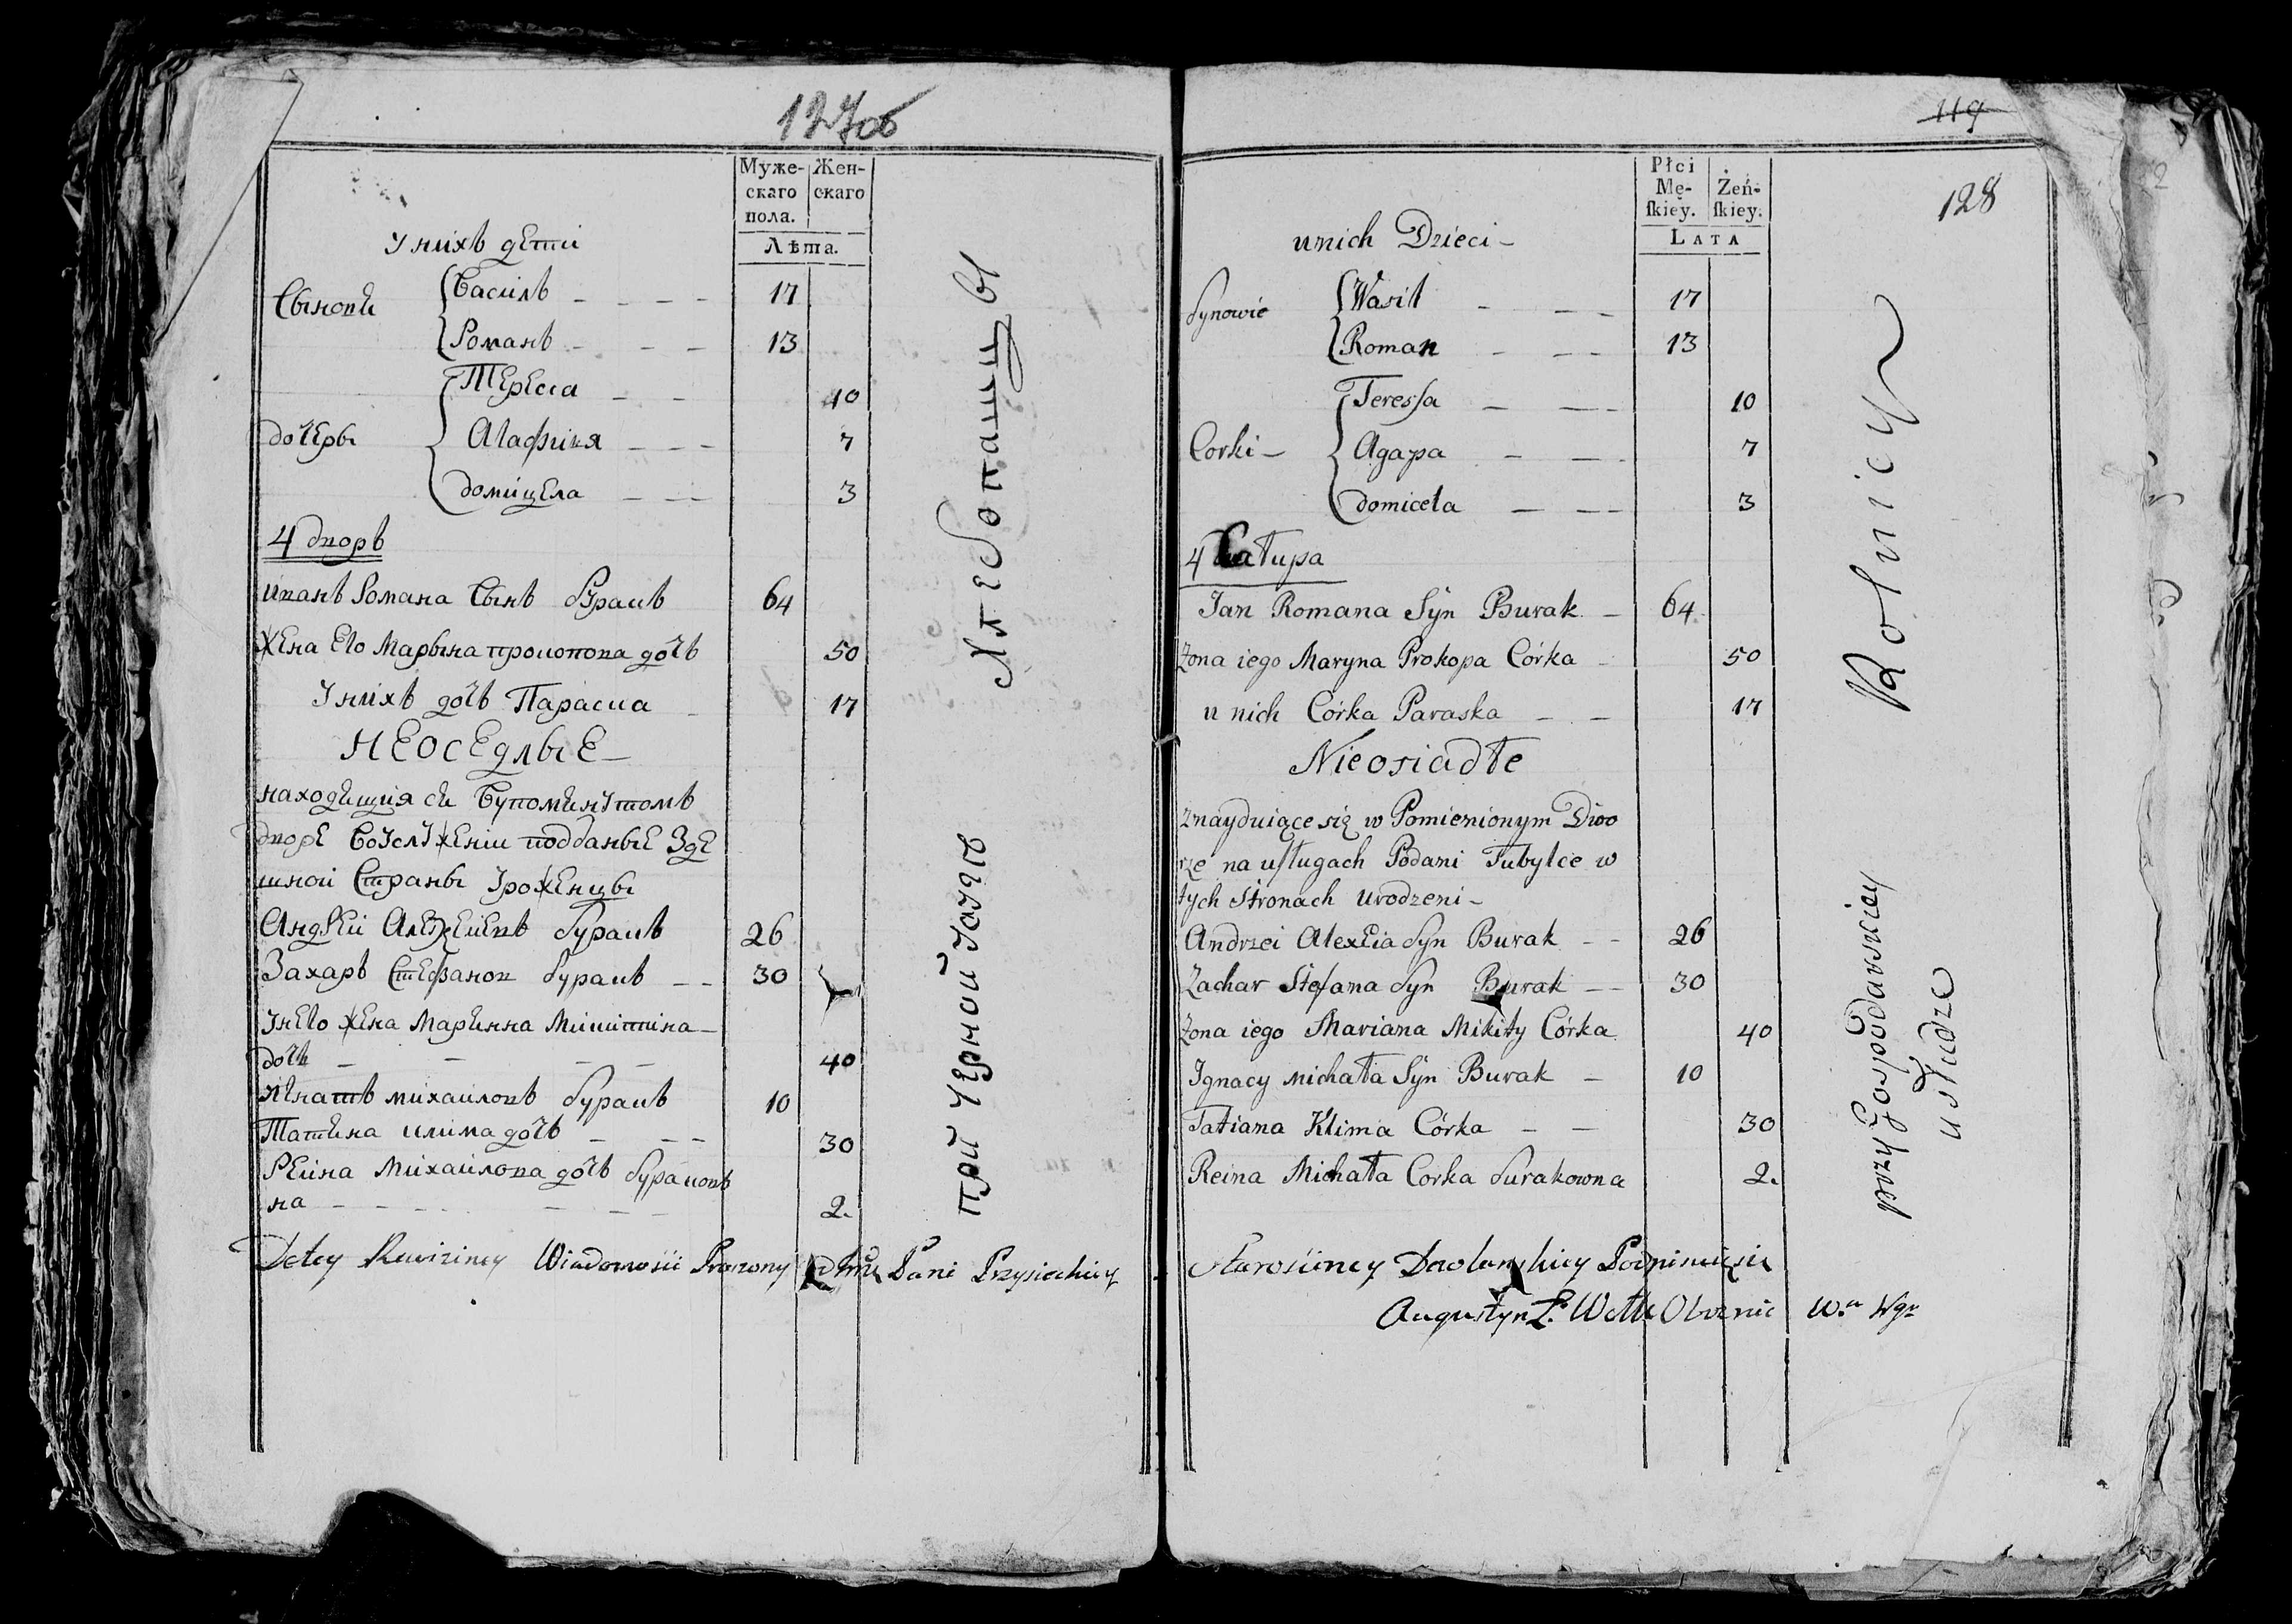 127об
Муже-
скаго
пола.
Жен-
скаго
Лѣта.
У нихъ дети
Сыновѣ
Василь 17
Романъ 13
дочеры
Тереса 10
Агафия 7
домицела 3
4 дворъ
иванъ Романа Сынъ Буракъ 64
Жена Его Марына прокопова дочь 50
У нихъ дочь Параска 17
НЕОСЕДЛЫЕ
находящия ся Вупомянутомъ
дворе Воуслужении подданые Зде
шной Страны Уроженцы
Андрей Алексеевъ Буракъ 26
Захаръ Стефанов Буракъ 30
УнЕго Жена Марянна Микитина
дочь 40
Игнатъ михайловъ Буракъ 10
Татяна клима дочь 30
Рейна Михайлова дочь Бураков
на 2.
Хлебопашцы
при черной услугѣ
119
128
Płci
Mę-
skiey.
Żeń-
skiey.
LATA
u nich Dzieci
Synowie
Wasil 17
Roman 13
Corki
Teressa 10
Agapa 7
domicela 3
4 Chałupa
Jan Romana Syn Burak 64
Zona iego Maryna Prokopa Córka 50
u nich Córka Paraska 17
Nieosiadłe
znayduiące się w Pomienionym Dwo
rze na usługach Podani Tubylce w
tych Stronach urodzeni
Andrzei Alexeia Syn Burak 26
Zachar Stefana Syn Burak 30
Zona iego Mariana Mikity Córka 40
Ignacy michała Syn Burak 10
Tatiana Klima Córka 30
Reina Michała Corka Burakowna 2.
Rolnicy
przy Gospodarskiey
usłudze
Do tey Rewizyiney Wiadomosci Proszony Pani Przysieckiey
Starościney Podpisuię się
Augustyn